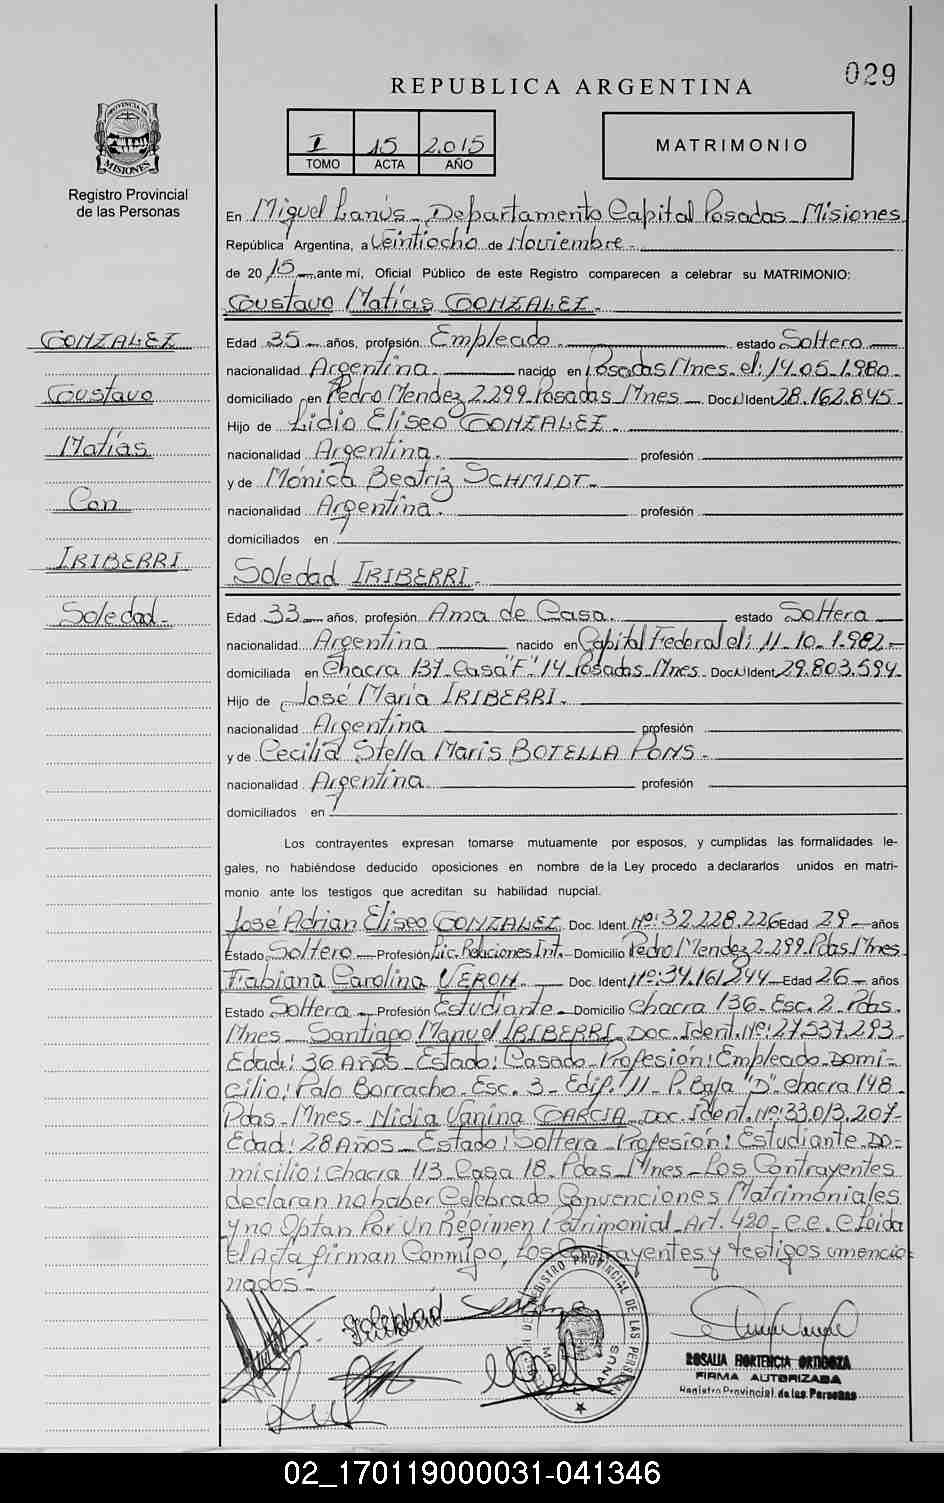 029
REPUBLICA ARGENTINA
PROVINCIA DE MISIONES
Registro Provincial
de las Personas
I 15 2.015
TOMO ACTA AÑO
MATRIMONIO
En Miguel Lanús - Departamento Capital Posadas - Misiones
República Argentina, a Veintiocho de Noviembre -
de 20 15 ante mí, Oficial Público de este Registro comparecen a celebrar su MATRIMONIO:
Gustavo Matías GONZALEZ -
GONZALEZ
Gustavo
Matías
Con
IRIBERRI
Soledad -
Edad 35 años, profesión Empleado estado Soltero
nacionalidad Argentina. nacido en Posadas Mnes. el: 14-05-1.980-
domiciliado en Pedro Mendez 2.299 Posadas Mnes - Doc.N.Ident 28.162.845-
Hijo de Lidio Eliseo GONZALEZ -
nacionalidad Argentina. profesión
y de Mónica Beatriz SCHMIDT -
nacionalidad Argentina. profesión
domiciliados en
Soledad IRIBERRI -
Edad 33 años, profesión Ama de Casa. estado Soltera
nacionalidad Argentina nacido en Capital Federal el: 11-10-1.982-
domiciliada en Chacra 137 Casa "F" 14 Posadas Mnes. Doc.N.Ident. 29.803.594-
Hijo de José María IRIBERRI.
nacionalidad Argentina profesión
y de Cecilia Stella Maris BOTELLA PONS -
nacionalidad Argentina profesión
domiciliados en
Los contrayentes expresan tomarse mutuamente por esposos, y cumplidas las formalidades le-
gales, no habiéndose deducido oposiciones en nombre de la Ley procedo a declararlos unidos en matri-
monio ante los testigos que acreditan su habilidad nupcial.
José Adrian Eliseo GONZALEZ Doc. Ident. Nº: 32.228.226 Edad 29 años
Estado Soltero Profesión Lic. Relaciones Int. Domicilio Pedro Mendez 2.299. Pdas. Mnes.
Fabiana Carolina VERON. Doc. Ident. Nº: 34.161.244 Edad 26 años
Estado Soltera Profesión Estudiante Domicilio Chacra 136 - Esc. 2. Pdas.
Mnes - Santiago Manuel IRIBERRI. Doc. Ident. Nº: 27.537.293-
Edad: 36 Años - Estado: Casado - Profesión: Empleado - Domi-
cilio: Palo Borracho - Esc. 3 - Edif. 11 - P. Baja "D" - Chacra 148 -
Pdas - Mnes - Nidia Vanina GARCIA Doc. Ident. Nº: 33.013.207-
Edad: 28 Años - Estado: Soltera - Profesión: Estudiante Do-
micilio: Chacra 113 - Casa 18. Pdas Mnes - Los Contrayentes
declaran no haber Celebrado Convenciones Matrimoniales
y no Optan Por Un Régimen Patrimonial - Art. 420 - C.C. C Leida
el Acta firman Conmigo, Los Contrayentes y testigos amencio-
nados -
REGISTRO PROVINCIAL DE LAS PERSONAS
ROSALIA HORTENCIA ORTIGOZA
FIRMA AUTORIZADA
Registro Provincial de las Personas
02_170119000031-041346